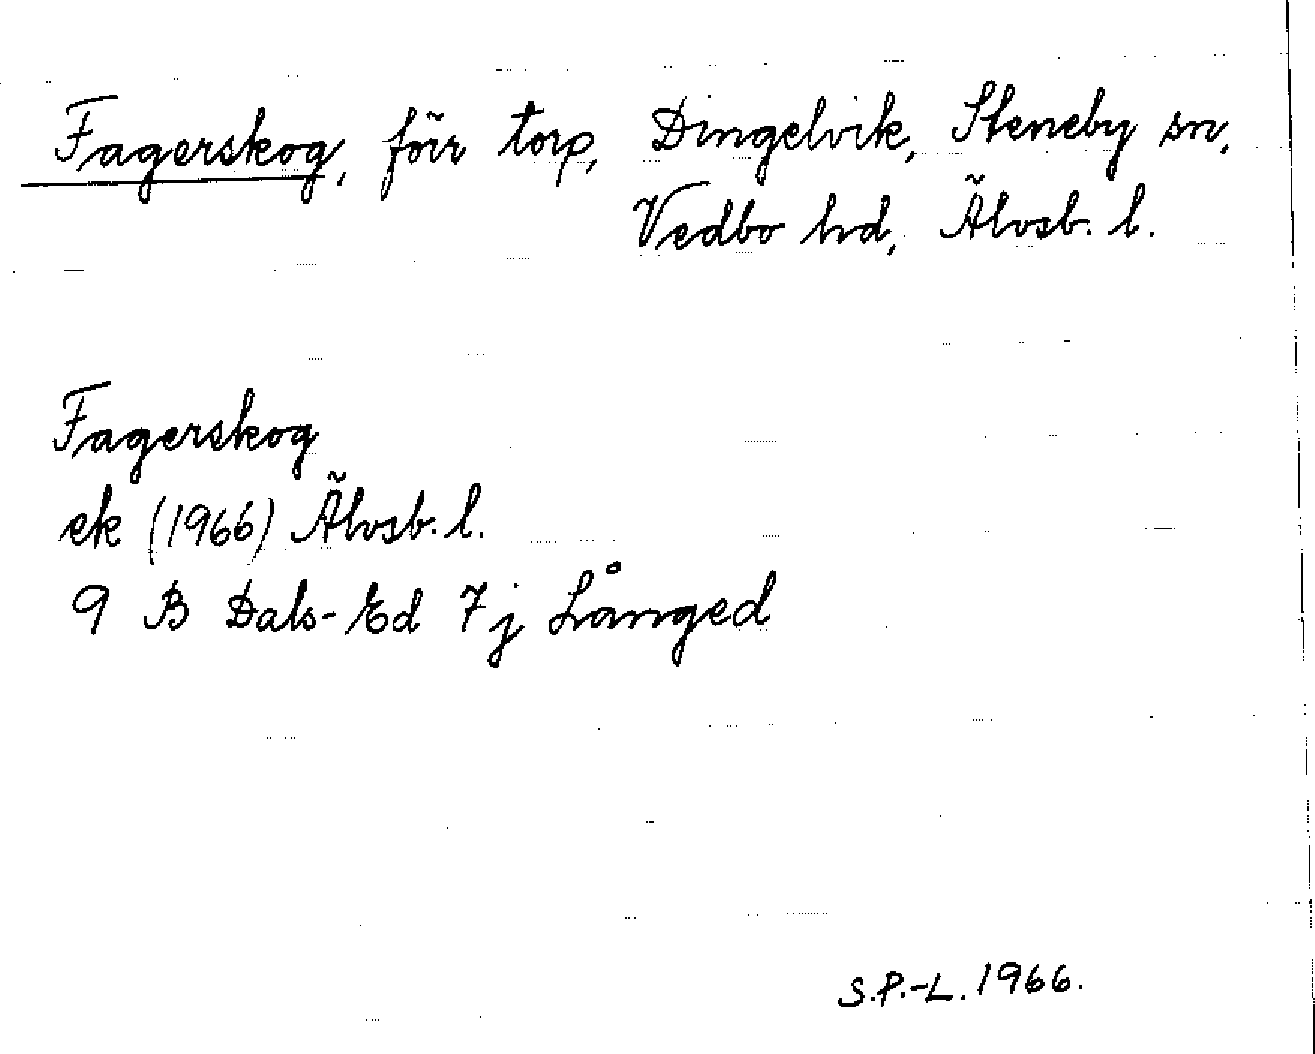 Fagerskog, förr torp, Dingelvik, Steneby sn,
Vedbo hd, Älvsb. l.
Fagerskog
ek (1966) Älvsb. l.
9 B Dals-Ed 7j Långed
S.P.-L. 1966.